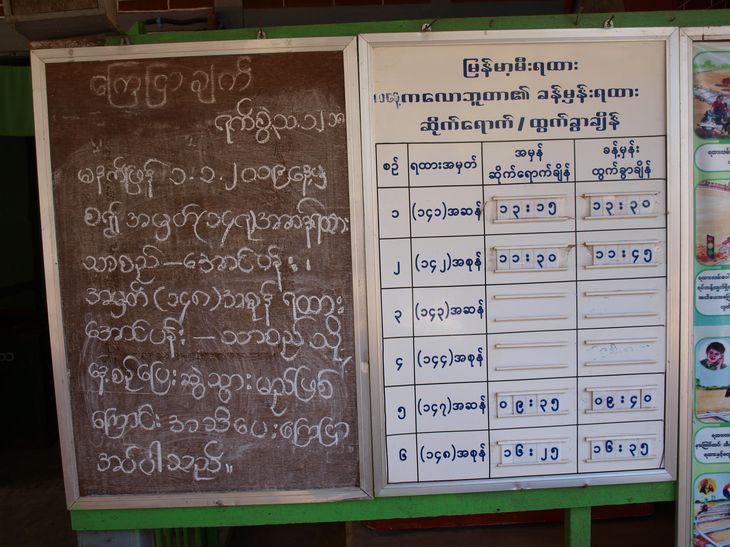 ကြေငြာချက်
ရက်စွဲ၃၁.၁၂.၁၈
မနက်ဖြန် ၁.၁.၂၀၁၉နေ့မှ
စ၍ အမှတ်(၁၄၇)အဆန်ရထား
သာစည်–အောင်ပန်း၊
အမှတ်(၁၄၈)အစုန် ရထား
အောင်ပန်း – သာစည်သို့
နေ့စဉ်ပြေးဆွဲသွားမည်ဖြစ်
ကြောင်း အသိပေးကြေငြာ
အပ်ပါသည်။
မြန်မာ့မီးရထား
ကလောဘူတာ၏ ခန့်မှန်းရထား
ဆိုက်ရောက် / ထွက်ခွာချိန်
စဉ် ရထားအမှတ် အမှန်ဆိုက်ရောက်ချိန် ခန့်မှန်းထွက်ခွာချိန်
၁ (၁၄၁)အဆန် ၁၃:၁၅ ၁၃:၃၀
၂ (၁၄၂)အစုန် ၁၁:၃၀ ၁၁:၄၅
၃ (၁၄၃)အဆန်
၄ (၁၄၄)အစုန်
၅ (၁၄၇)အဆန် ၀၉:၃၅ ၀၉:၄၀
၆ (၁၄၈)အစုန် ၁၆:၂၅ ၁၆:၃၅